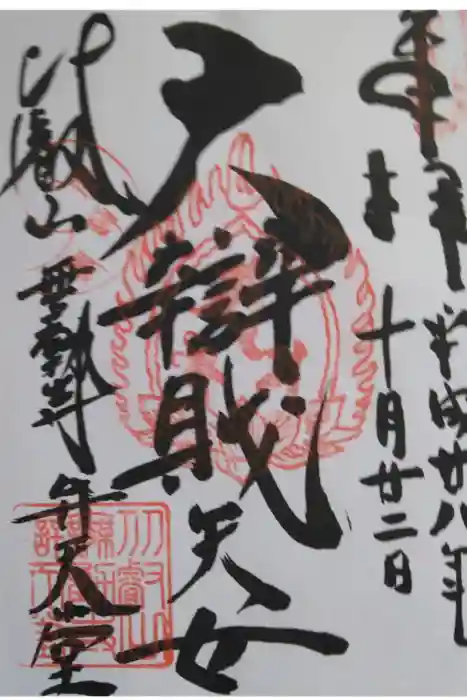 奉拝
平成廿八年
十月廿二日
辯財天女
比叡山無動寺
弁天堂